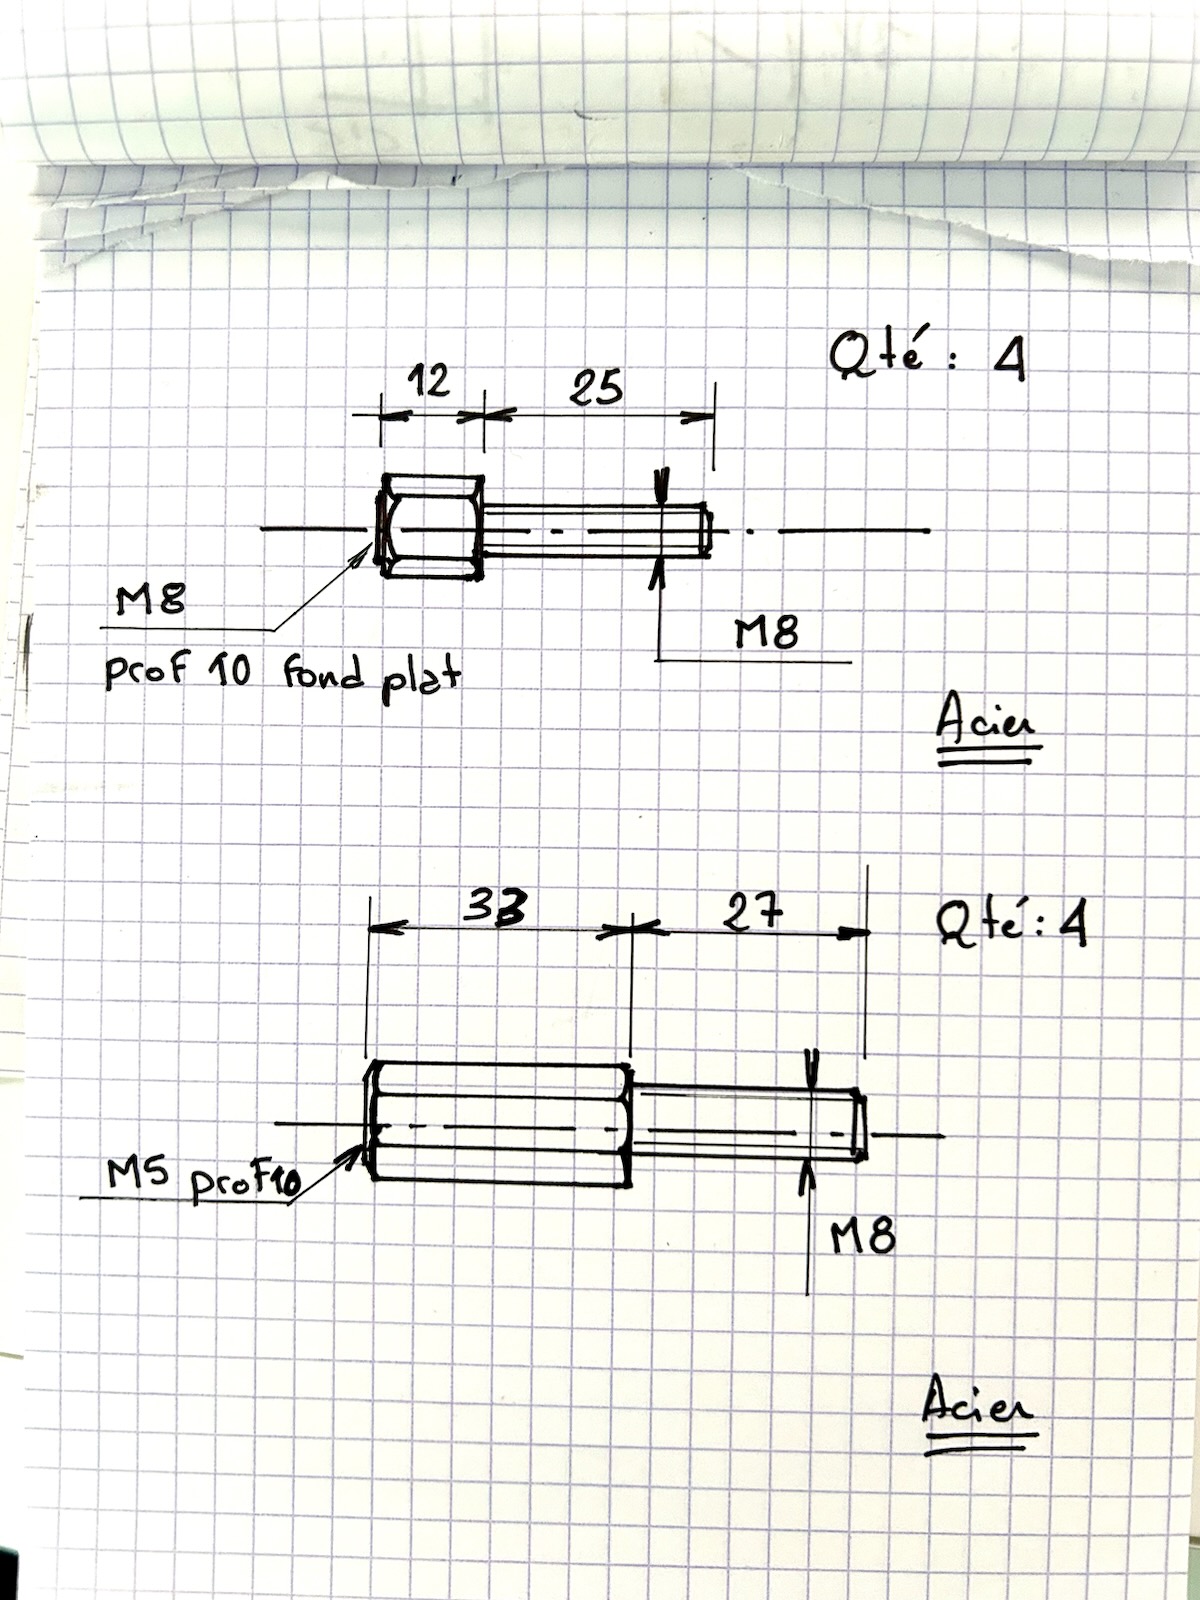 Qté : 4
12 25
M8
prof 10 fond plat
M8
Acier
33 27
Qté : 4
M5 prof 10
M8
Acier